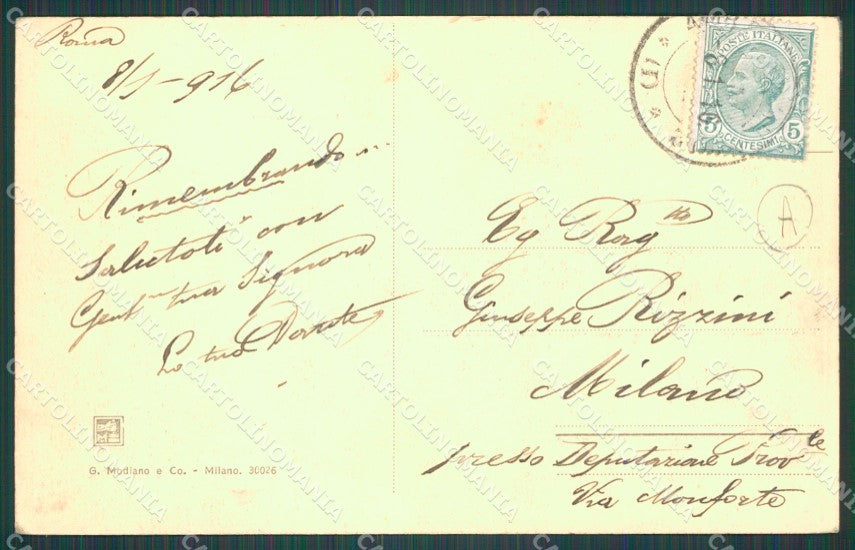 Roma
8/1-916
Rimembrando...
Salutoti con
Gent.ma tua Signora
Lo tuo
G. Modiano e Co. - Milano. 30026
POSTE ITALIANE
5 CENTESIMI 5
(1)
A
Eg Rag
Giuseppe Rizzini
Milano
presso Deputazione Prov.le
Via Monforte
CARTOLINOMANIA